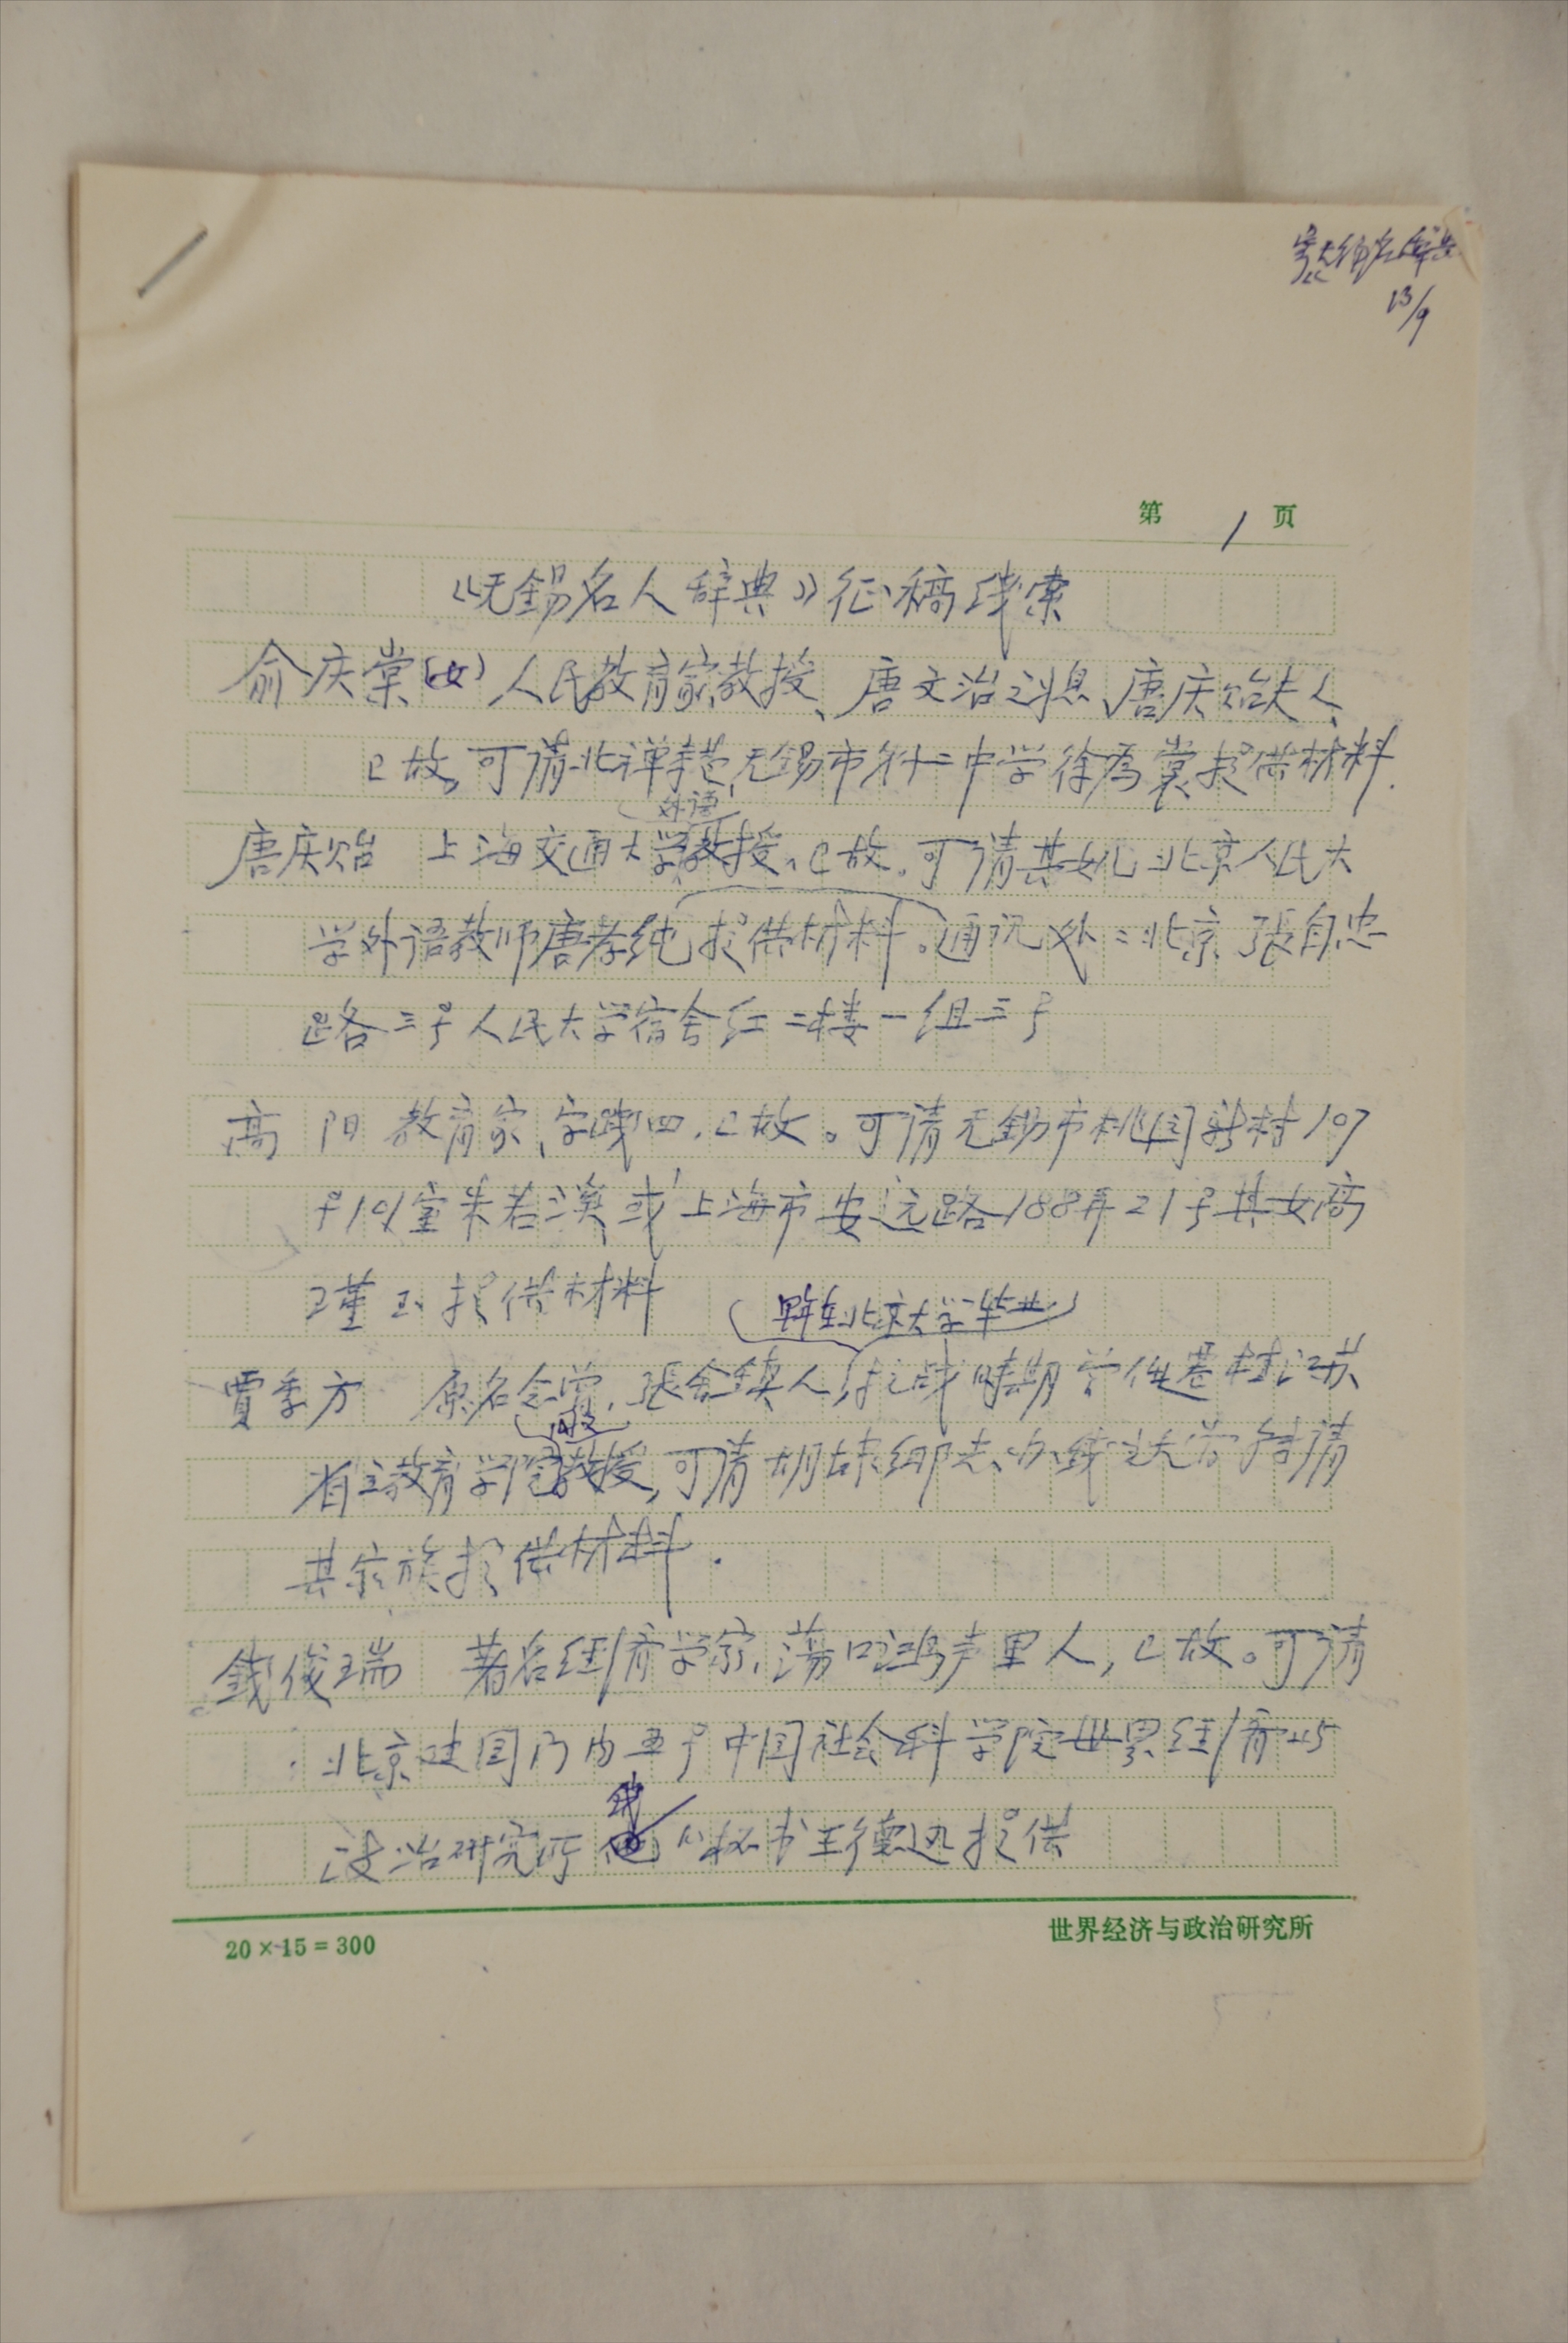 13/9
第 1 页
《无锡名人辞典》征稿线索
俞庆棠(女) 人民教育家、教授、唐文治之媳、唐庆诒夫人、
已故,可请北禅寺巷无锡市第十二中学徐为裳提供材料.
外语
唐庆诒 上海交通大学教授、已故。可请其女儿北京人民大
学外语教师唐孝纯提供材料。通讯处:北京張自忠
路三号人民大学宿舍红二楼一组三号
高 阳 教育家、字践四、已故。可请无锡市桃园新村107
号101室朱若溪或上海市安远路188弄21号其女高
瑾玉提供材料
早年在北京大学毕业
賈季方 原名念曾,張舍镇人,抗战时期 苏
省立教育学院教授,可请胡埭乡 请
其家族提供材料.
錢俊瑞 著名经济学家、蕩口鸿声里人,已故。可请
北京建国门内五号中国社会科学院世界经济与
政治研究所 钱 的秘书王德迅提供
20×15=300
世界经济与政治研究所